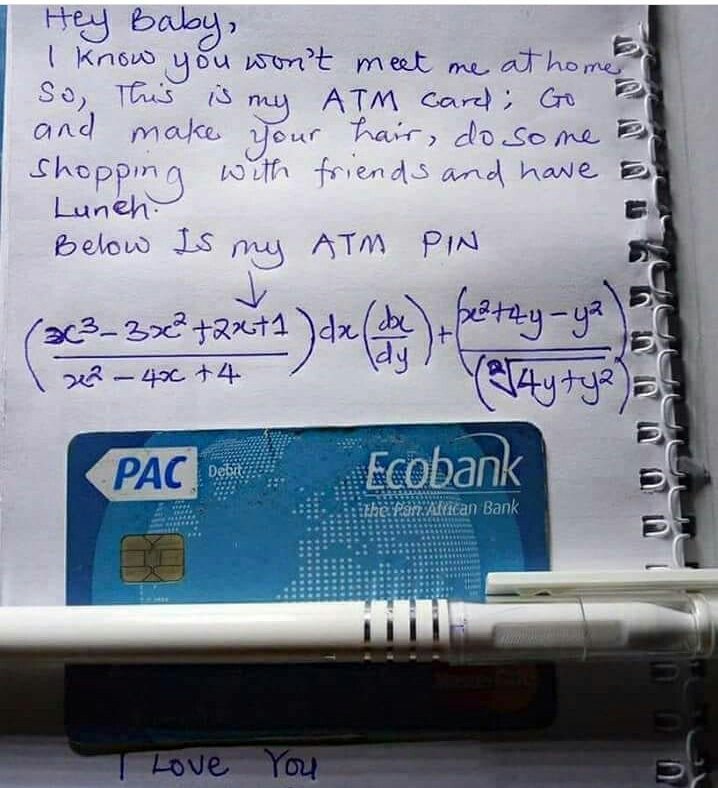 Hey Baby,
I Know you won't meet me at home
So, This is my ATM card; Go
and make your hair, do some
shopping with friends and have
Lunch.
Below Is my ATM PIN
↓
(x³ - 3x² + 2x + 1 / x² - 4x + 4) dx (dx/dy) + (x² + 4y - y² / (²√4y + y²))
PAC Debit Ecobank
The Pan African Bank
I Love You